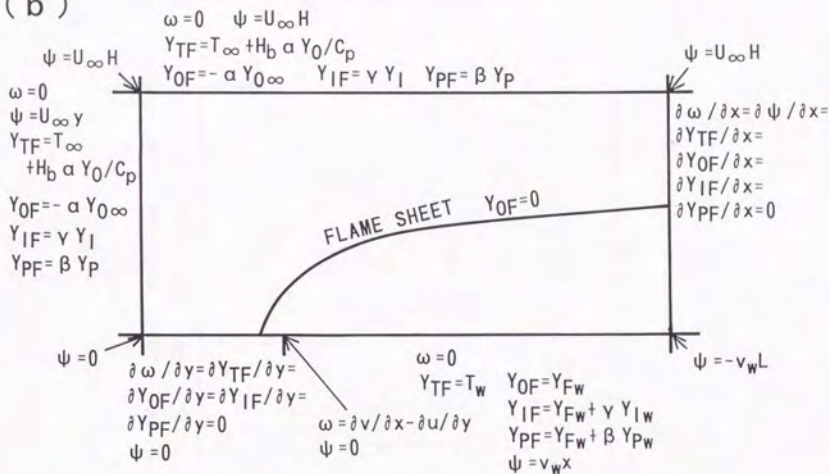 (b)
ω=0 ψ=U∞H
Y_TF=T∞+H_b α Y_O/C_p
Y_OF=-α Y_O∞ Y_IF=γ Y_I Y_PF=β Y_P
ψ=U∞H
ψ=U∞H
ω=0
ψ=U∞y
Y_TF=T∞
+H_b α Y_O/C_p
Y_OF=-α Y_O∞
Y_IF=γ Y_I
Y_PF=β Y_P
∂ω/∂x=∂ψ/∂x=
∂Y_TF/∂x=
∂Y_OF/∂x=
∂Y_IF/∂x=
∂Y_PF/∂x=0
FLAME SHEET Y_OF=0
ψ=0
∂ω/∂y=∂Y_TF/∂y=
∂Y_OF/∂y=∂Y_IF/∂y=
∂Y_PF/∂y=0
ψ=0
ω=∂v/∂x-∂u/∂y
ψ=0
ω=0
Y_TF=T_w Y_OF=Y_Fw
Y_IF=Y_Fw+γ Y_Iw
Y_PF=Y_Fw+β Y_Pw
ψ=v_wx
ψ=-v_wL